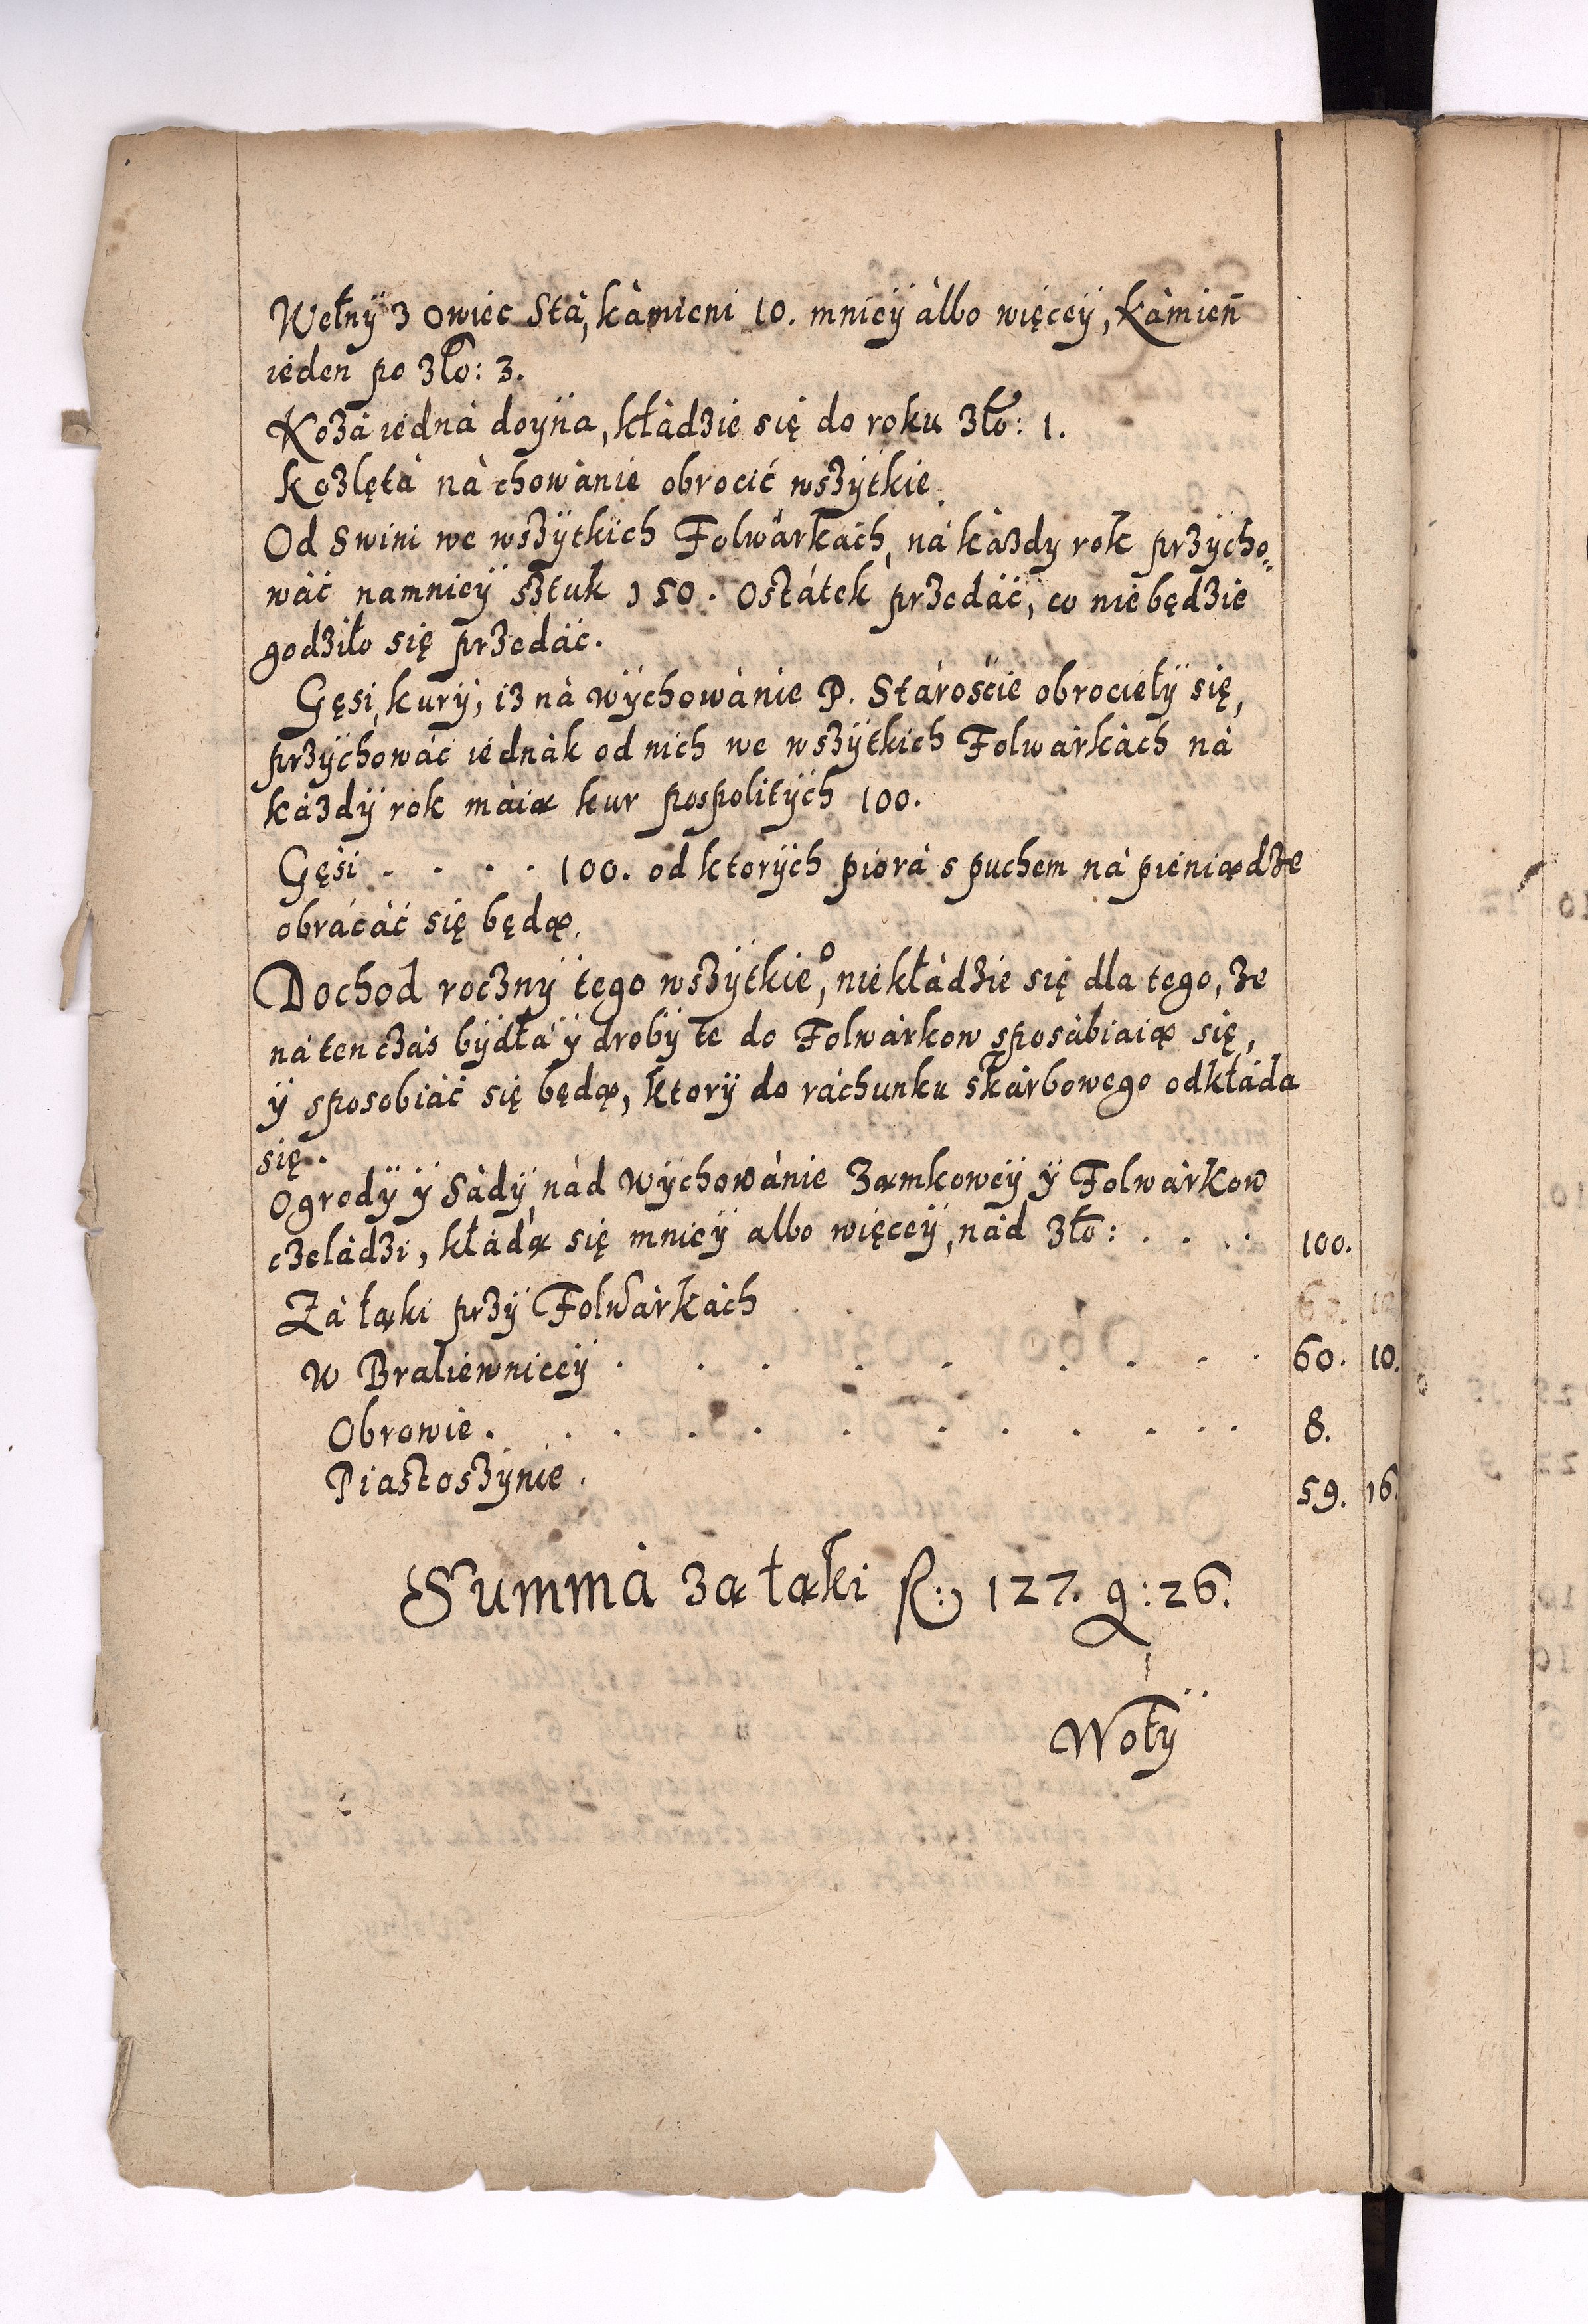 Wełnÿ z Owiec Stà, kàmieni 10. mnieÿ àlbo więceÿ, Kàmień
ieden po zło: 3.
Kozà iednà doÿna, kłàdzie się do roku zło: 1.
Kozlętà nà chowànie obrocić wszÿtkie.
Od Swini we wszÿtkich Folwàrkàch, nà kàzdy rok przÿcho„
wàć namnieÿ sztuk 150. Ostàtek przedàć, co niebędzie
godziło się przedàć.
Gęsi, kurÿ, iz nà wÿchowànie P. Stàroście obrociełÿ się,
przÿchowàć iednàk od nich we wszÿtkich Folwàrkàch nà
kàzdÿ rok màią kur pospolitÿch 100.
Gęsi . . . . 100. od ktorÿch piorà s puchem nà pieniądze
obràcàć się będą.
Dochod rocznÿ tego wszÿtkieº, niekłàdzie się dla tego, ze
nà ten czàs bÿdłà ÿ drobÿ te do Folwàrkow sposàbiaią się,
ÿ sposobiàć się będą, ktorÿ do ràchunku skàrbowego odkłàda
się.
Ogrodÿ ÿ Sàdÿ, nàd wÿchowànie Zamkoweÿ ÿ Folwàrkow
czelàdzi, kłàdą się mnieÿ albo więceÿ, nàd zło: . . . . 100.
Zà łąki przÿ Folwàrkàch
W Bralewniceÿ . . . . . . . . . 60. 10.
Obrowie . . . . . . . . . . . . 8.
Piastoszÿnie . 59. 16.
Summà za łąki R: 127. g: 26.
Wołÿ